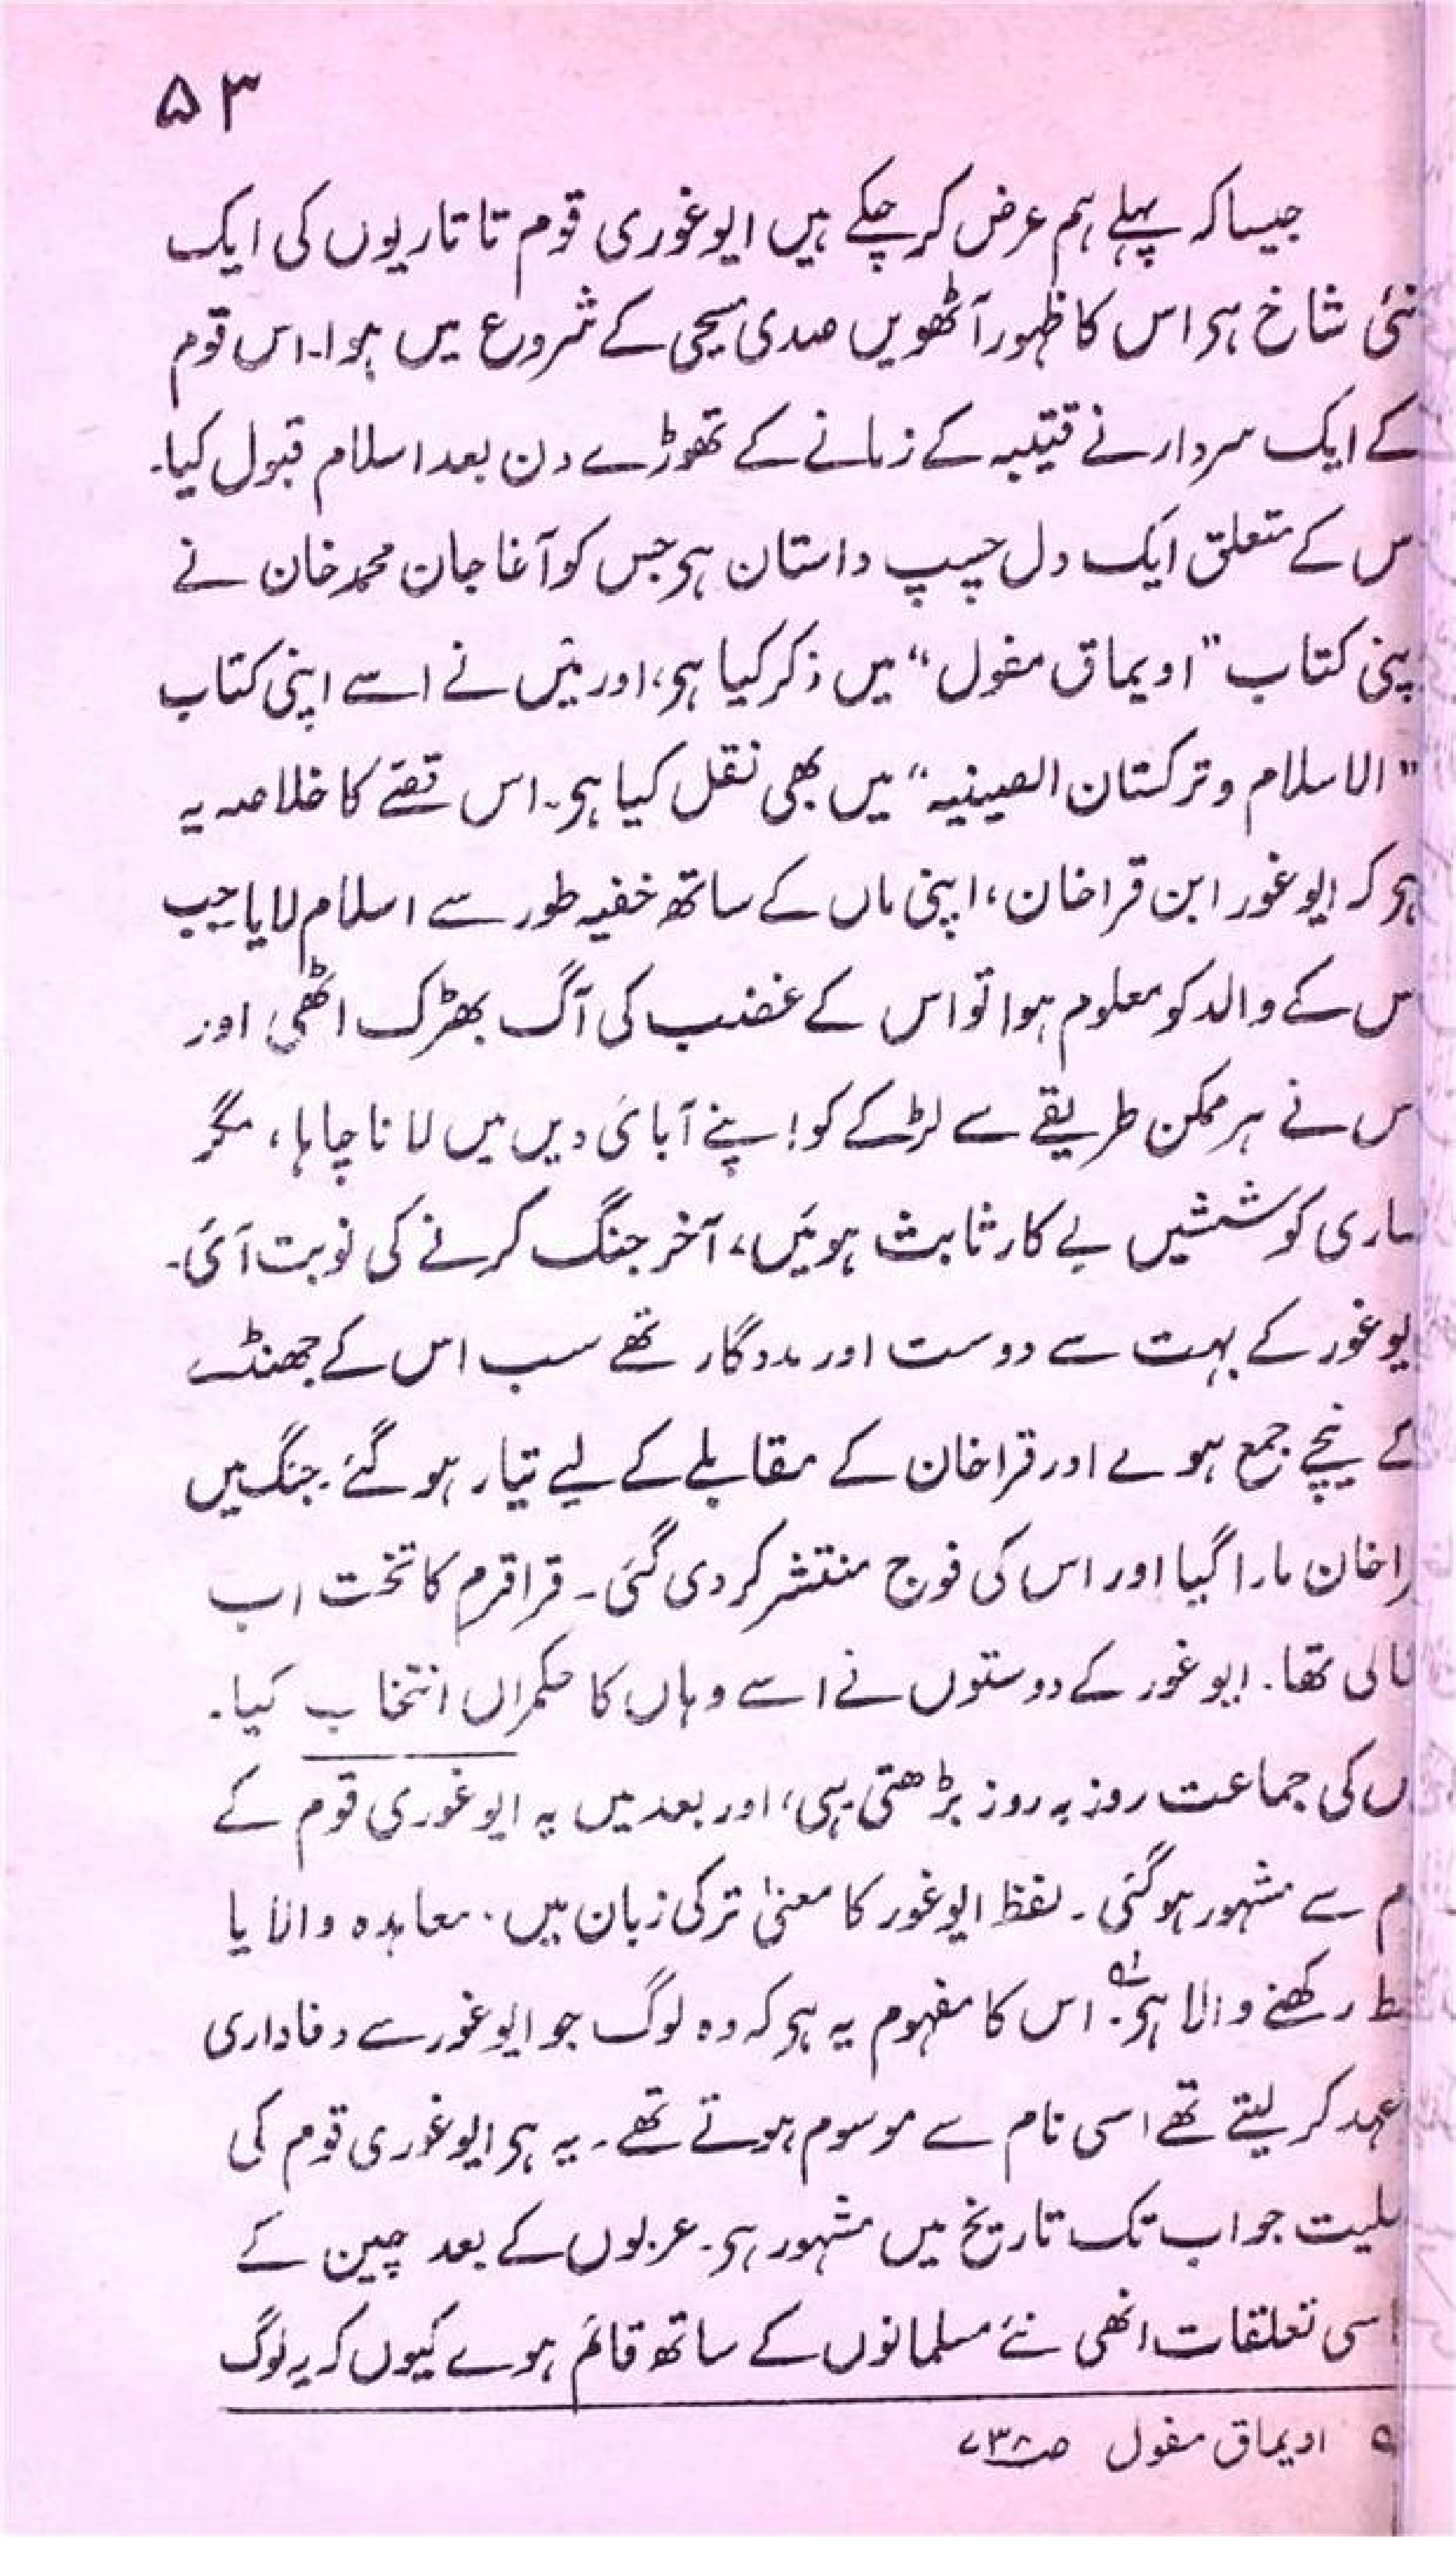 ۵۳
جیسا کہ پہلے ہم عرض کر چکے ہیں ایوغوری قوم تاتاریوں کی ایک
نئی شاخ ہی اس کا ظہور آٹھویں صدی مسیحی کے شروع میں ہوا۔ اس قوم
کے ایک سردار نے قتیبہ کے زمانے کے تھوڑے دن بعد اسلام قبول کیا۔
س کے متعلق ایک دل چسپ داستان ہی جس کو آغا جان محمد خان نے
پنی کتاب "اویماق مغول" میں ذکر کیا ہی، اور میں نے اسے اپنی کتاب
"الاسلام و ترکستان الصینیہ" میں بھی نقل کیا ہی۔ اس قصّے کا خلاصہ یہ
ہی کہ ایوغور ابن قراخان، اپنی ماں کے ساتھ خفیہ طور سے اسلام لایا جب
س کے والد کو معلوم ہوا تو اس کے غضب کی آگ بھڑک اٹھی اور
س نے ہر ممکن طریقے سے لڑکے کو اپنے آبائی دیں میں لانا چاہا، مگر
ساری کوششیں بے کار ثابت ہوئیں، آخر جنگ کرنے کی نوبت آئی۔
یوغور کے بہت سے دوست اور مددگار تھے سب اس کے جھنڈے
کے نیچے جمع ہوے اور قراخان کے مقابلے کے لیے تیار ہو گئے۔ جنگ میں
راخان مارا گیا اور اس کی فوج منتشر کر دی گئی۔ قراقرم کا تخت اب
خالی تھا۔ ایوغور کے دوستوں نے اسے وہاں کا حکمراں انتخاب کیا۔
س کی جماعت روز بہ روز بڑھتی رہی، اور بعد میں یہ ایوغوری قوم کے
م سے مشہور ہو گئی۔ لفظ ایوغور کا معنیٰ ترکی زبان میں۔ معاہدہ والا یا
بط رکھنے والا ہی۔؎ اس کا مفہوم یہ ہی کہ وہ لوگ جو ایوغور سے وفاداری
عہد کر لیتے تھے اسی نام سے موسوم ہوتے تھے۔ یہ ہی ایوغوری قوم کی
صلیت جو اب تک تاریخ میں مشہور ہی۔ عربوں کے بعد چین کے
سی تعلقات انھی نئے مسلمانوں کے ساتھ قائم ہوے کیوں کہ یہ لوگ
؎ اویماق مغول ص۷۳۸